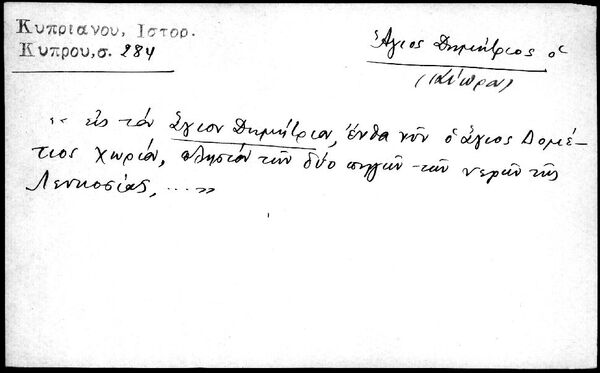 Κυπριανου, Ιστορ.
Κυπρου, σ. 284
Ἅγιος Δημήτριος ὁ
(Κύπρου)
« εἰς τὸν Ἅγιον Δημήτριον, ἔνθα νῦν ὁ Ἅγιος Δομέ-
τιος χωρίον, πλησίον τῶν δύο πηγῶν τῶν νερῶν τῆς
Λευκοσίας, ...»